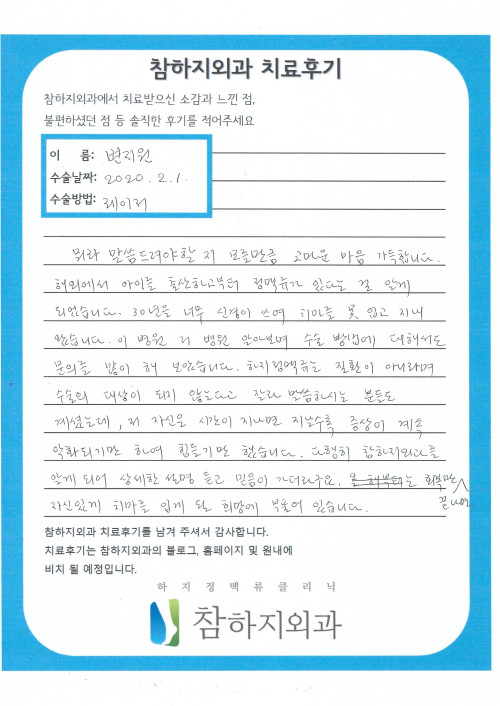 참하지외과 치료후기
참하지외과에서 치료받으신 소감과 느낀 점,
불편하셨던 점 등 솔직한 후기를 적어주세요
이 름: 변지원
수술날짜: 2020. 2. 1.
수술방법: 레이저
뭐라 말씀드려야할 지 모를만큼 고마운 마음 가득합니다.
해외에서 아이를 출산하고부터 정맥류가 있다는 걸 알게
되었습니다. 30년을 너무 신경이 쓰여 치마를 못 입고 지내
왔습니다. 이 병원 저 병원 알아보며 수술 방법에 대해서도
문의를 많이 해 보았습니다. 하지정맥류는 질환이 아니라며
수술의 대상이 되지 않는다고 잘라 말씀하시는 분들도
계셨는데, 저 자신은 시간이 지나면 지날수록 증상이 계속
악화되기만 하여 힘들기만 했습니다. 다행히 참하지외과를
알게 되어 상세한 설명 듣고 믿음이 가더라구요. 올 해부터는 회복만 끝나면
자신있게 치마를 입게 될 희망에 부풀어 있습니다.
참하지외과 치료후기를 남겨 주셔서 감사합니다.
치료후기는 참하지외과의 블로그, 홈페이지 및 원내에
비치 될 예정입니다.
하지정맥류클리닉
참하지외과